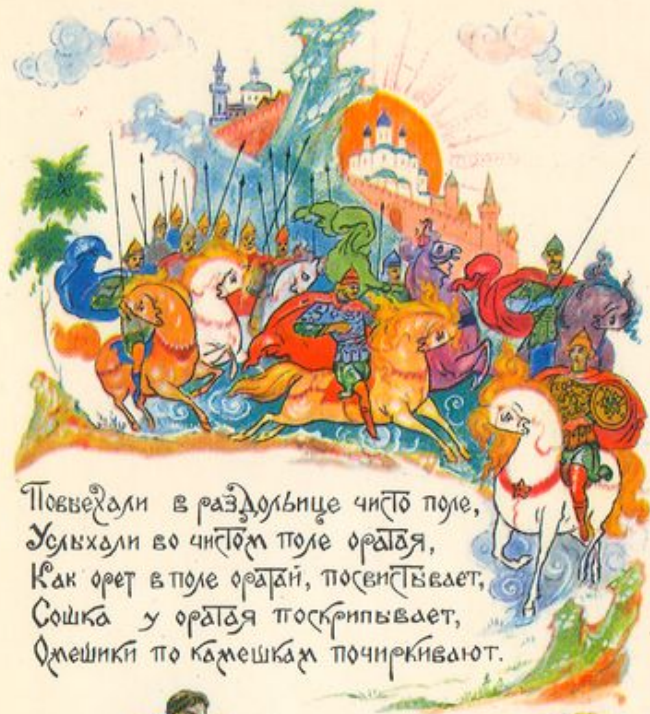 Повыехали в раздольице чисто поле,
Услыхали во чистом поле оратая,
Как орет в поле оратай, посвистывает,
Сошка у оратая поскрипывает,
Омешики по камешкам почиркивают.